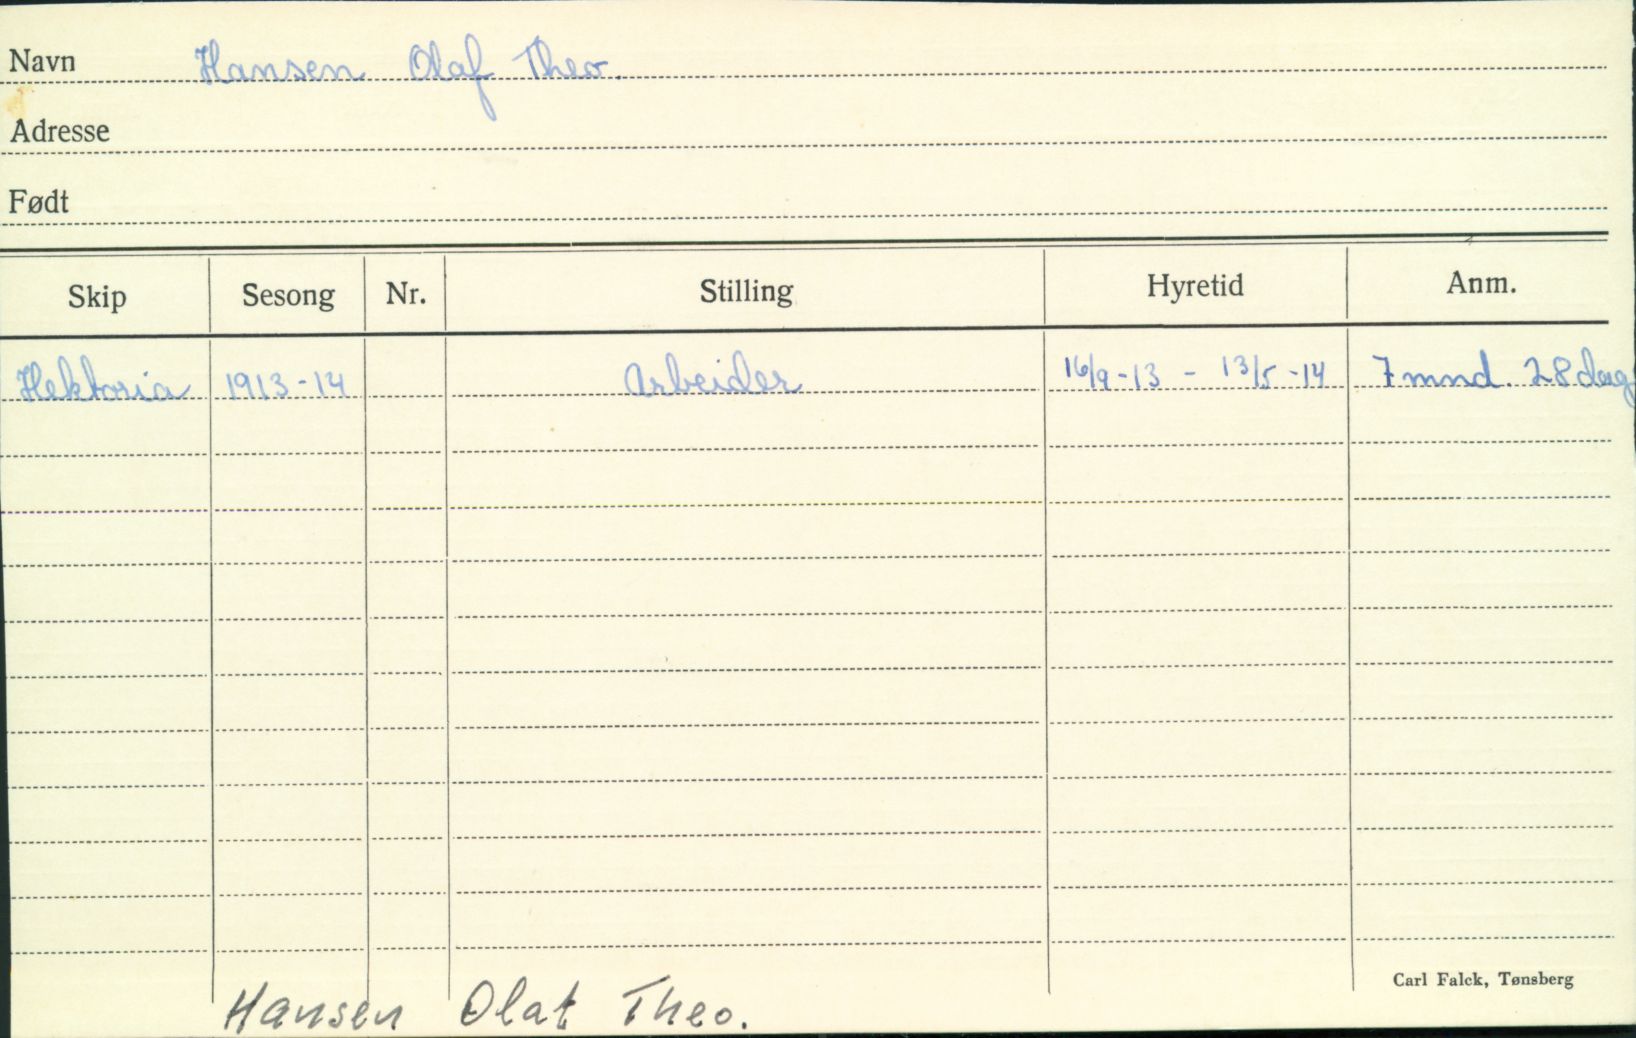 Navn Hansen Olaf Theo.
Adresse
Født
Skip Sesong Nr. Stilling Hyretid Anm.
Hektoria 1913-14 Arbeider 16/9-13 - 13/5-14 7 mnd. 28 dag
Carl Falck, Tønsberg
Hansen Olaf Theo.